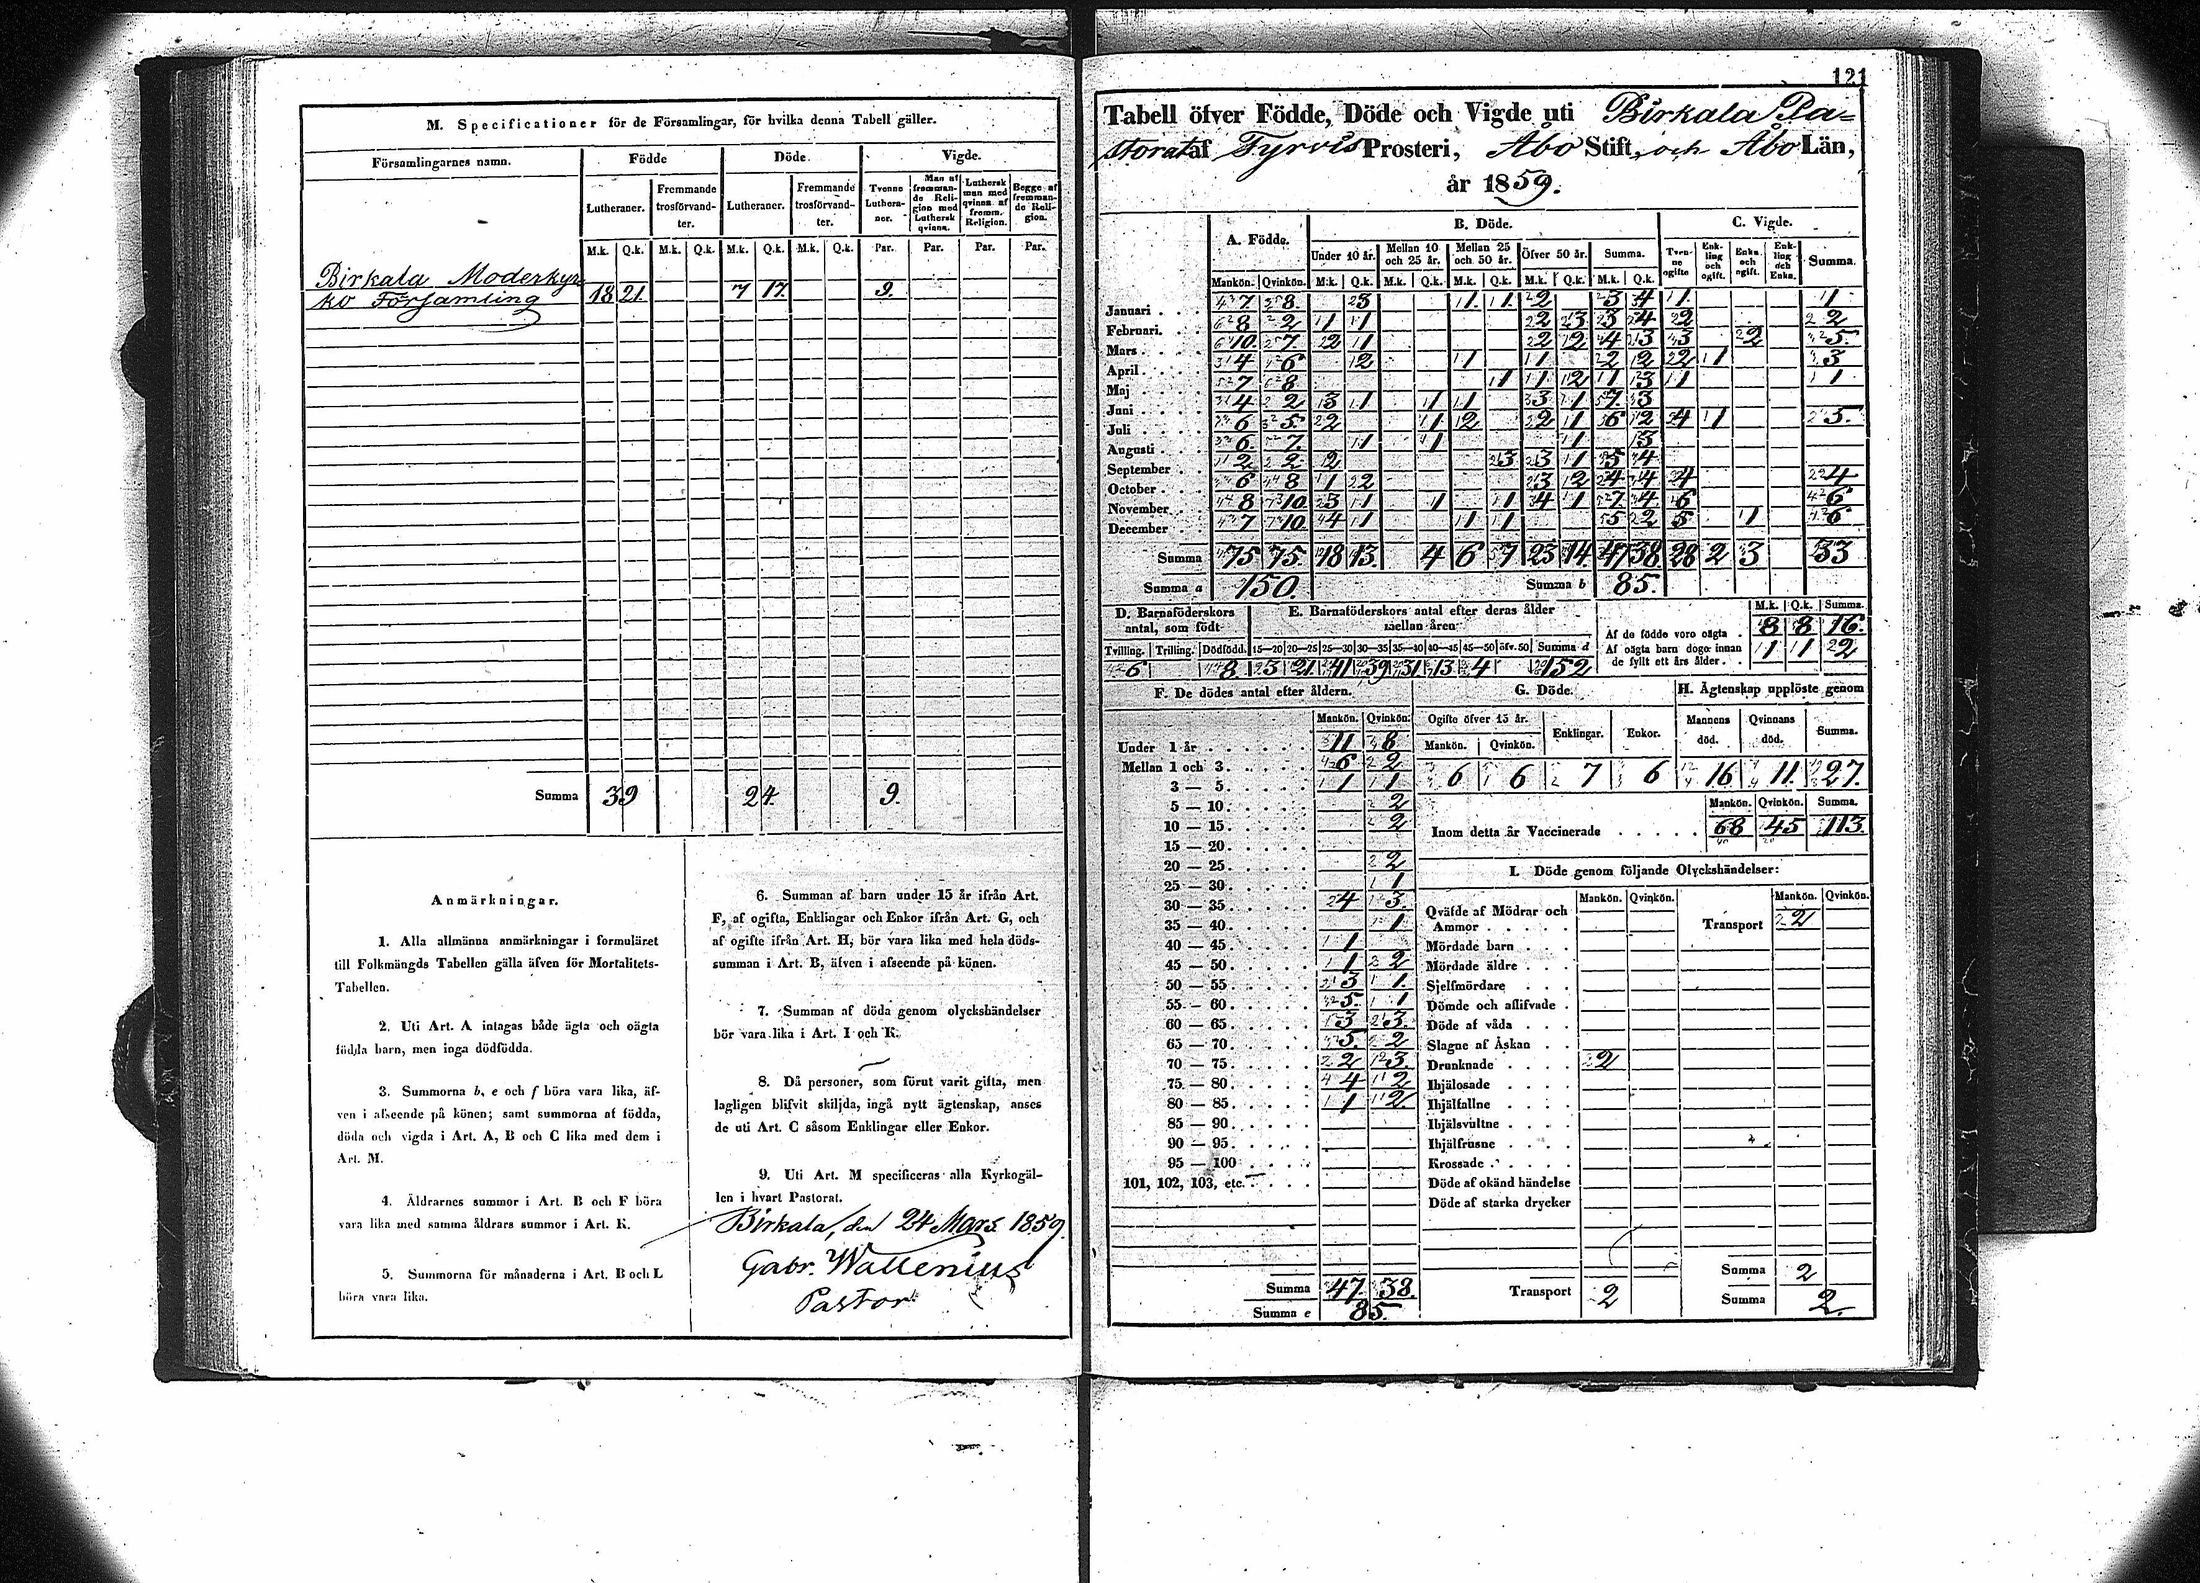 M. Specificationer för de Församlingar, för hvilka denna Tabell gäller.
Församlingarnes namn. Födde Döde. Vigde.
Lutheraner. Fremmande trosförvandter. Lutheraner. Fremmande trosförvandter. Tvenne Lutheraner. Man af fremmande Religion med Luthersk qvinna. Luthersk man med qvinna af fremm. Religion. Begge af fremmande Religion.
M.k. Q.k. M.k. Q.k. M.k. Q.k. M.k. Q.k. Par. Par. Par. Par.
Birkala Moderkyr=
ko Församling 18 21. 7 17. 9.
Summa 39 24. 9.
Anmärkningar.
1. Alla allmänna anmärkningar i formuläret
till Folkmängds Tabellen gälla äfven för Mortalitets-
Tabellen.
2. Uti Art. A intagas både ägta och oägta
födda barn, men inga dödfödda.
3. Summorna b, e och f böra vara lika, äf-
ven i afseende på könen; samt summorna af födda,
döda och vigda i Art. A, B och C lika med dem i
Art. M.
4. Åldrarnes summor i Art. B och F böra
vara lika med samma åldrars summor i Art. K.
5. Summorna för månaderna i Art. B och L
böra vara lika.
6. Summan af barn under 15 år ifrån Art.
F, af ogifta, Enklingar och Enkor ifrån Art. G, och
af ogifte ifrån Art. H, bör vara lika med hela döds-
summan i Art. B, äfven i afseende på könen.
7. Summan af döda genom olyckshändelser
bör vara lika i Art. I och K.
8. Då personer, som förut varit gifta, men
lagligen blifvit skiljda, ingå nytt ägtenskap, anses
de uti Art. C såsom Enklingar eller Enkor.
9. Uti Art. M specificeras alla Kyrkogäl-
len i hvart Pastorat.
Birkala, den 24 Mars 1859.
Gabr. Wallenius
Pastor.
121
Tabell öfver Födde, Döde och Vigde uti Birkala Pa=
storat af Tyrvis Prosteri, Åbo Stift, och Åbo Län,
år 1859.
A. Födde. B. Döde. C. Vigde.
Under 10 år. Mellan 10 och 25 år. Mellan 25 och 50 år. Öfver 50 år. Summa. Tvenne ogifte Enkling och ogift. Enka och ogift. Enkling och Enka. Summa.
Mankön. Qvinkön. M.k. Q.k. M.k. Q.k. M.k. Q.k. M.k. Q.k. M.k. Q.k.
Januari 7 8. 3 1. 1. 2 3 4 1. 1
Februari. 8 2 1 1 2 3 3 4 2 2
Mars 10 7. 2 1 2 2 4 3 3 2 5.
April 4 6 2 1 1 2 2 2 1 3
Maj 7 8 1 1 2 1 3 1 1
Juni 4 2 3 1 1 1 3 1 7. 3
Juli 6 5. 2 1 2 2 1 6 2 4 1 5.
Augusti 6 7. 1 1 1 3
September 2 2 2 3 3 1 5 4
October 6 8 1 2 3 2 4 4 4 4
November 8 10 3 1 1 1 4 1 7. 4 6 6
December 7 10 4 1 1 1 5 2 5 1 6
Summa 75 75. 18 13. 4 6 7 23 14. 47 38. 28 2 3 33
Summa a 150. Summa b 85.
D. Barnaföderskors antal, som födt E. Barnaföderskors antal efter deras ålder mellan åren
Tvilling. Trilling. Dödfödd. 15—20 20—25 25—30 30—35 35—40 40—45 45—50 öfv. 50 Summa d
6 8 3 21. 41 39 31 13 4 152
M.k. Q.k. Summa.
Af de födde voro oägta 8 8 16.
Af oägta barn dogo innan
de fyllt ett års ålder. 1 1 2
F. De dödes antal efter åldern.
Mankön. Qvinkön.
Under 1 år 11 8
Mellan 1 och 3. 6 2
3 — 5. 1 1
5 — 10. 2
10 — 15. 2
15 — 20.
20 — 25. 2
25 — 30. 1
30 — 35. 4 3
35 — 40. 1
40 — 45. 1
45 — 50. 1 2
50 — 55. 3 1.
55 — 60. 5. 1
60 — 65. 3 3.
65 — 70. 5. 2
70 — 75. 2 3.
75 — 80. 4 2
80 — 85. 1 2.
85 — 90.
90 — 95.
95 — 100
101, 102, 103, etc.
Summa 47. 38.
Summa e 85.
G. Döde.
Ogifte öfver 15 år. Enklingar. Enkor.
Mankön. Qvinkön.
6 6 7 6
H. Ägtenskap upplöste genom
Mannens död. Qvinnans död. Summa.
16 11. 27.
Mankön. Qvinkön. Summa.
Inom detta år Vaccinerade 68 45 113.
I. Döde genom följande Olyckshändelser:
Mankön. Qvinkön. Mankön. Qvinkön.
Qväfde af Mödrar och
Ammor Transport 2
Mördade barn
Mördade äldre
Sjelfmördare
Dömde och aflifvade
Döde af våda
Slagne af Åskan
Drunknade 2
Ihjälosade
Ihjälfallne
Ihjälsvultne
Ihjälfrusne
Krossade
Döde af okänd händelse
Döde af starka drycker
Transport 2
Summa 2
Summa 2.